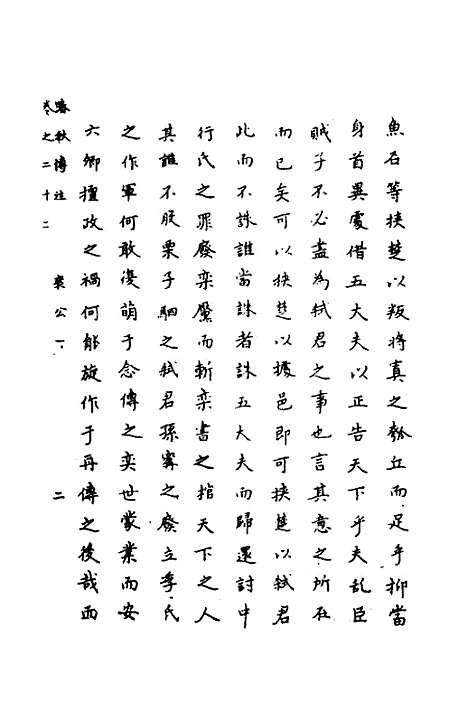 魚石等挾楚以叛將真之瓠丘而足乎抑當
身首異處借五大夫以正告天下乎夫乱臣
賊子不必盡為弑君之事也言其意之所在
而已矣可以挾楚以據邑即可挾楚以弑君
此而不誅誰當誅者誅五大夫而歸還討中
行氏之罪廢栾黶而斬栾書之棺天下之人
其誰不股栗子駟之弑君孫寗之廢立季氏
之作軍何敢復萌于念傳之奕世蒙業而安
六卿擅政之禍何能旋作于再傳之後哉而
春秋傳註
卷之二十二
襄公一
二